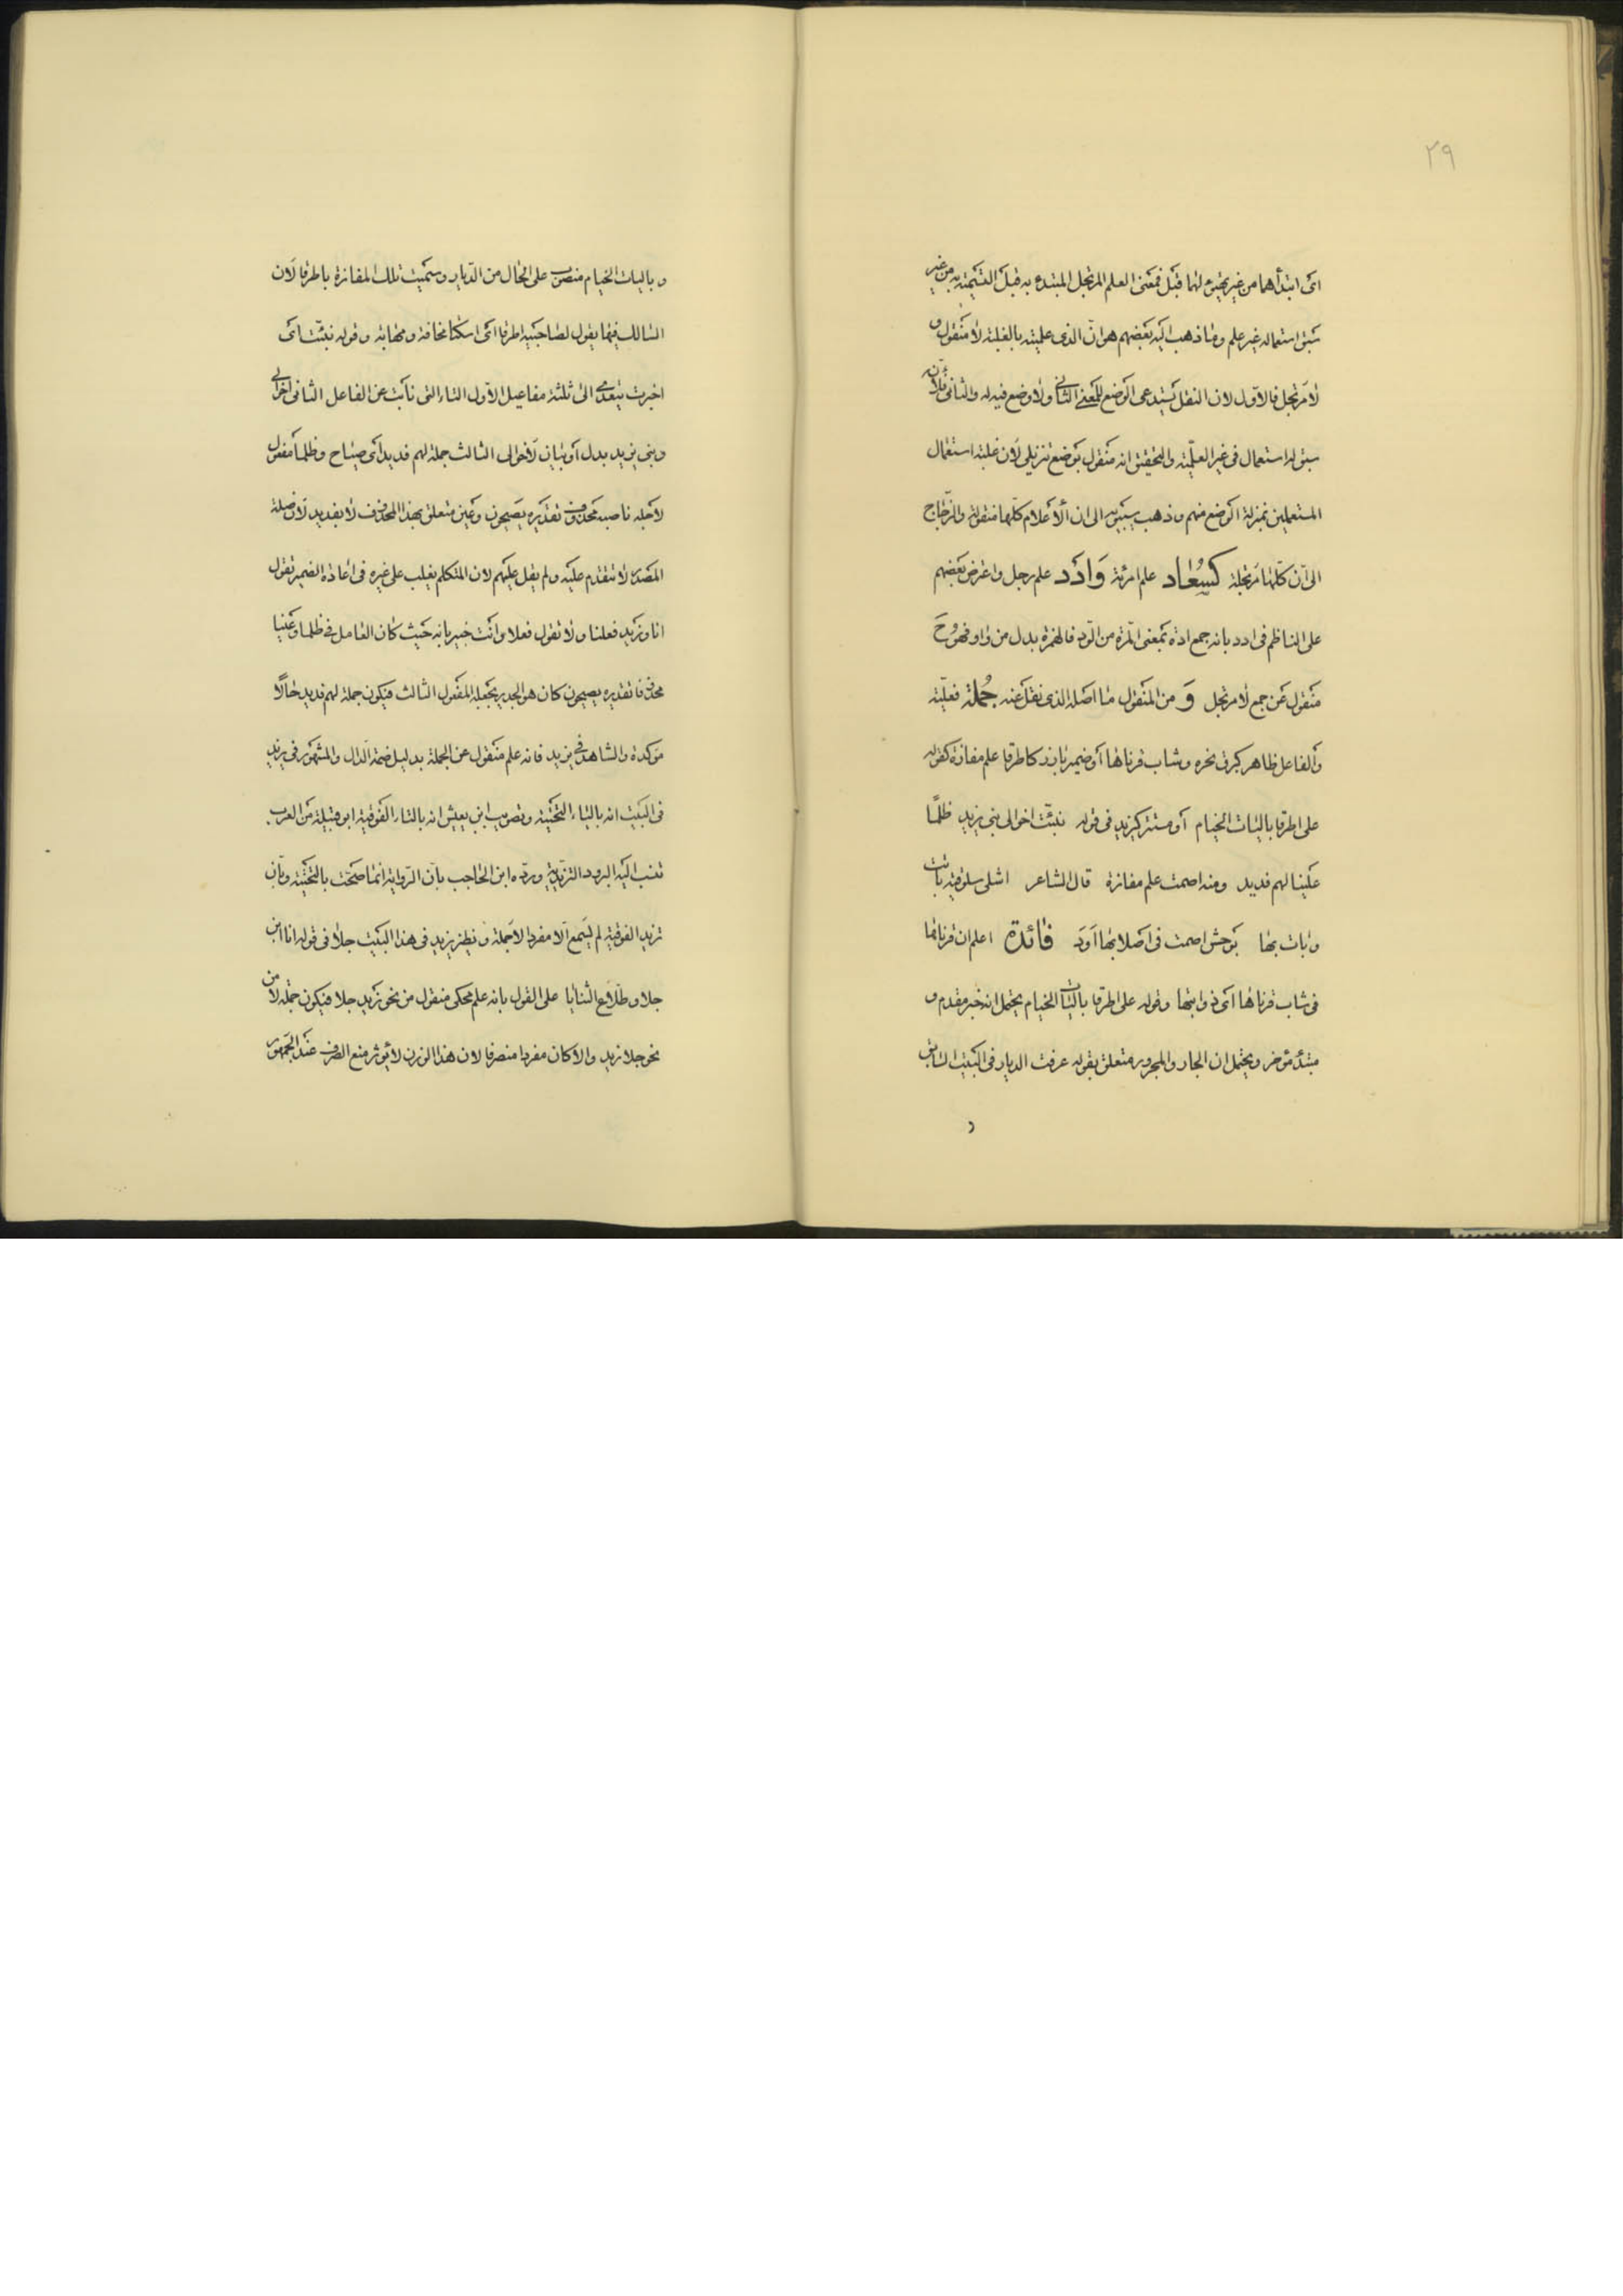 ٢٩
اى ابتدأهما من غير تهيئ لهما قبل فمعنى العلم المرتجل المبتدء به قبل التسمية به من غير
سبق استعماله غير علم وما ذهب اليه بعضهم هو ان الذى علميته بالغلبة لا منقول و
لا مرتجل فالاول لان النقل يستدعى الوضع للمعنى الثانى ولا وضع فيه له والثانى فلانه
سبق له استعمال فى غير العلمية والتحقيق انه منقول بوضع تنزيلى لان غلبة استعمال
المستعملين بمنزلة الوضع منهم وذهب سيبويه الى ان الاعلام كلها منقولة والزجاج
الى ان كلها مرتجلة كسُعاد علم امرئة وَادَد علم رجل واعترض بعضهم
على الناظم فى ادد بانه جمع ادة بمعنى المرة من الود فالهمزة بدل من واو فهو ح
منقول عن جمع لا مرتجل وَ من المنقول ما اصله الذى نقل عنه جُملة فعلية
والفاعل ظاهر كبرق نحره وشاب قرناها أو ضمير بارز كاطرقا علم مفازة كقوله
على اطرقا باليات الخيام أو مستتر كيزيد فى قوله نبئت اخوالى بنى يزيد ظلمًا
علينا لهم فديد ومنه اصمت علم مفازة قال الشاعر اشلى سلوقية باتت
وبات بها بوحش اصمت فى اصلابها اود فائدة اعلم ان قرناها
فى شاب قرناها اى ذوابتها وقوله على اطرقا باليات الخيام يحتمل انه خبر مقدم و
مبتدء مؤخر ويحتمل ان الجار والمجرور متعلق بقوله عرفت الديار فى البيت السابق
و
وباليات الخيام منصوب على الحال من الديار وسميت تلك المفازة باطرقا لان
السالك فيها يقول لصاحبيه اطرقا اى اسكتا مخافة ومهابة وقوله نبئت اى
اخبرت يتعدى الى ثلثة مفاعيل الاول التاء التى نابت عن الفاعل الثانى اخوالى
وبنى يزيد بدل أو بيان لاخوالى الثالث جملة لهم فديد اى صياح وظلما مفعول
لاجله ناصبه محذوف تقديره يصيحون وعلين متعلق بهذا المحذوف لا بفديد لان صلة
المصدر لا تتقدم عليه ولم يقل عليهم لان المتكلم يغلب على غيره فى اعادة الضمير تقول
انا وزيد فعلنا ولا تقول فعلا وانت خبير بانه حيث كان العامل فى ظلما وعلينا
محذوفا تقديره يصيحون كان هو الجدير بجعله المفعول الثالث فيكون جملة لهم فديد حالًا
مؤكدة والشاهد فى يزيد فانه علم منقول عن الجملة بدليل ضمة الدال والمشهور فى يزيد
فى البيت انه بالياء التحتية وتصويب ابن يعيش انه بالتاء الفوقية ابو قبيلة من العرب
تنسب اليه البرود التزيدية ورده ابن الحاجب بان الرواية انما صحت بالتحتية وبان
تزيد الفوقية لم يسمع الا مفردا لا جملة و نظير يزيد فى هذا البيت جلا فى قوله انا ابن
جلا وطلاع الثنايا على القول بانه علم محكى منقول من نحو زيد جلا فيكون جملة لا من
نحو جلا زيد والا كان مفردا منصرفا لان هذا الوزن لا يؤثر منع الصرف عند الجمهور